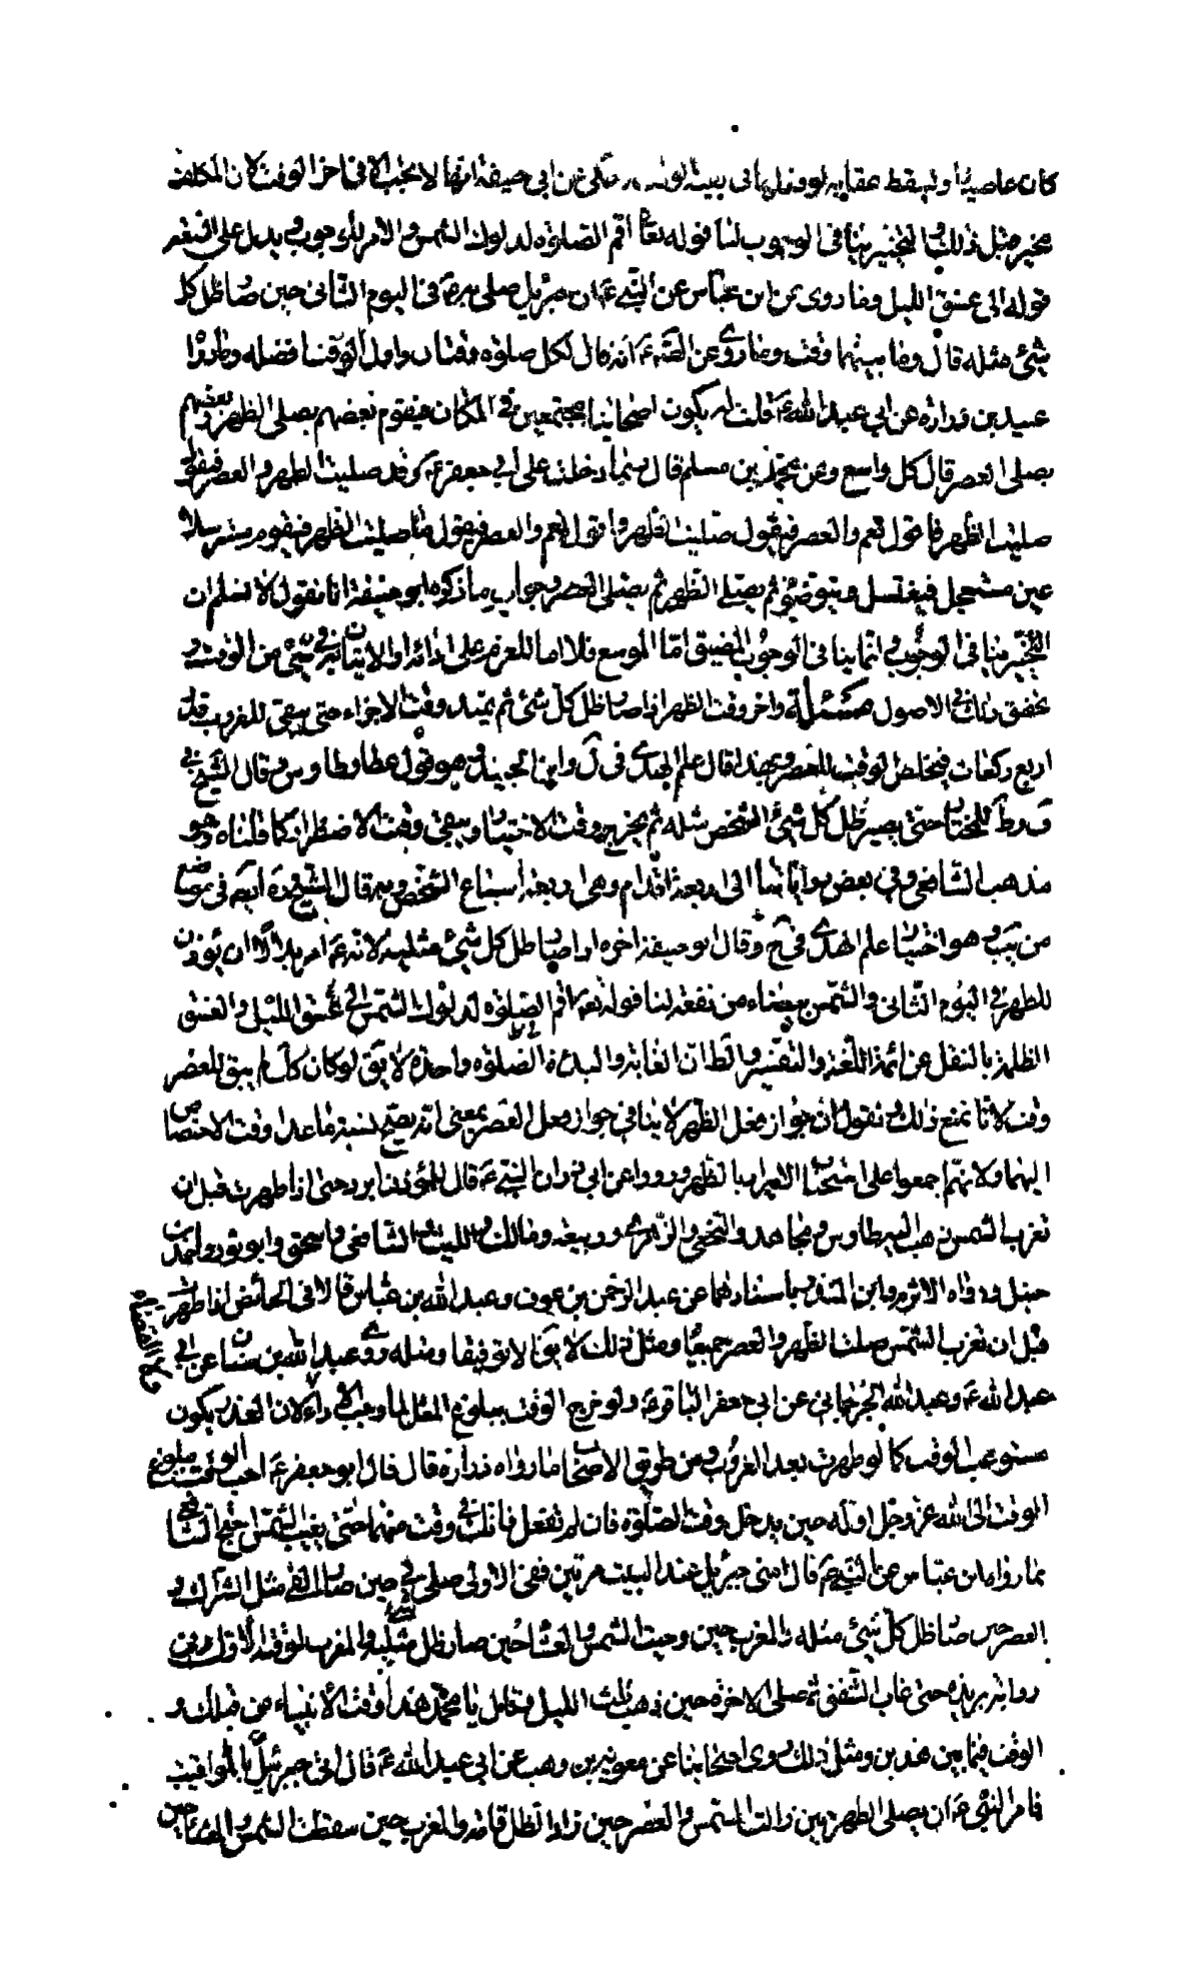 كان عاصيا ويسقط عقابه لو وفى بها في بيته لو حكي عن أبي حنيفة انها لا تجب الا في اخر الوقت لان المكلف
مخير قبل ذلك والتخيير ينافى الوجوب لنا قوله تعا أقم الصلوة لدلوك الشمس والامر للوجوب ويدل على التوسعة
قوله الى غسق الليل وما روى عن ابن عباس عن النبي ع ان جبرئيل صلى به ع في اليوم الثانى حين صار ظل كل
شيئ مثله قال وما بينهما وقت وما روي عن الصم ع انه قال لكل صلوة وقتان واول الوقت افضله وما رواه
عبيد بن زرارة عن ابي عبد الله ع قلت له يكون اصحابنا مجتمعين في المكان فيقوم بعضهم يصلى الظهر وبعضهم
يصلى العصر قال كل واسع وعن محمد بن مسلم قال ربما دخلت على ابي جعفر ع وقد صليت الظهر والعصر فيقول
صليت الظهر فاقول نعم والعصر فيقول صليت الظهر واقول نعم والعصر فيقول ما صليت الظهر فيقوم مترسلا
غير مستعجل فيغتسل ويتوضئ ثم يصلى الظهر ثم يصلى العصر وجواب ما ذكره ابو حنيفة انا نقول لا نسلم ان
التخيير ينافى الوجوب انما ينافى الوجوب المضيق اما الموسع فلا اما للعزم على ادائه او الاتيان به في شيئ من الوقت وقد
تحقق ذلك في الاصول مسئلة واخر وقت الظهر اذا صار ظل كل شيئ ثم يمتد وقت الاجزاء حتى يبقى للغروب قدر
اربع ركعات فيخلص الوقت للعصر وبهذا قال علم الهدى في ل وابن الجنيد وهو قول عطا وطاوس وقال الشيخ في
ف وط للمختار حتى يصير ظل كل شيئ الشخص مثله ثم يخرج وقت الاختيار ويبقى وقت الاضطرار كما قلناه وهو
مذهب الشافعي وفي بعض رواياتنا الى اربعة اقدام وهي اربعة اسباع الشخص وبه قال الشيخ ره ايضا في موضع
من يب وهو اختيار علم الهدى في ح وقال ابو حنيفة اخره اذا صار ظل كل شيئ مثليه لانه ع امر بلالا ان يؤذن
للظهر في اليوم الثانى والشمس بيضاء من نفعه لنا قوله تعا اقم الصلوة لدلوك الشمس الى غسق الليل والغسق
الظلمة بالنقل عن ائمة اللغة والتفسير والظاهر ان الغاية والبداءة الصلوة واحدة لا يق لو كان كك لم يبق للعصر
وقت لانا نمنع ذلك ونقول ان جواز فعل الظهر لا ينافى جواز فعل العصر بمعنى انه يصح نسبة ما عدا وقت الاختصاص
اليهما ولانهم اجمعوا على استحباب الابراد بالظهر ورووا عن ابي ذر ان النبي ع قال للمؤذن ابرد حتى اذا طهرت قبل ان
تغرب الشمس ذهب اليه طاوس ومجاهد والنخعي والزهري وربيعة ومالك والليث والشافعى واسحق وابو ثور واحمد بن
حنبل ورواه الاثرم وابن المنذر باسنادهما عن عبد الرحمن بن عوف وعبد الله بن عباس قالا في الحائض اذا طهرت
قبل ان تغرب الشمس صلت الظهر والعصر جميعا ومثل ذلك لا يق الا توقيفا ومثله روى عبد الله بن سنان عن ابي
عبد الله ع وعبد الله الجرجاني عن ابي جعفر الباقر ع ولو خرج الوقت ببلوغ المثل لما وجب الاداء لان العذر يكون
مستوعب الوقت كما لو طهرت بعد الغروب ومن طريق الاصحاب ما رواه زرارة قال قال ابو جعفر ع احب
الوقت الى الله عز وجل اوله حين يدخل وقت الصلوة فان لم تفعل فانك في وقت منهما حتى يغيب الشمس احتج الشافعي
بما رواه ابن عباس عن النبي ع قال امنى جبرئيل عند البيت مرتين ففى الاولى صلى بي حين صار الفئ مثل الشراك و
العصر حين صار ظل كل شيئ مثله والمغرب حين وجبت الشمس والعشاء حين صار ظل مثليه والمغرب لوقته الاول وفى
رواية بريدة حتى غاب الشفق ثم صلى الاخرة حين ذهب ثلث الليل وقال يا محمد هذا وقت الانبياء من قبلك و
الوقت فيما بين هذين ومثل ذلك روى اصحابنا عن معوية بن وهب عن ابي عبد الله ع قال اتى جبرئيل بالمواقيت
فامر النبي ع ان يصلى الظهر حين زالت الشمس والعصر حين زاد الظل قامة والمغرب حين سقطت الشمس والعشاء حين